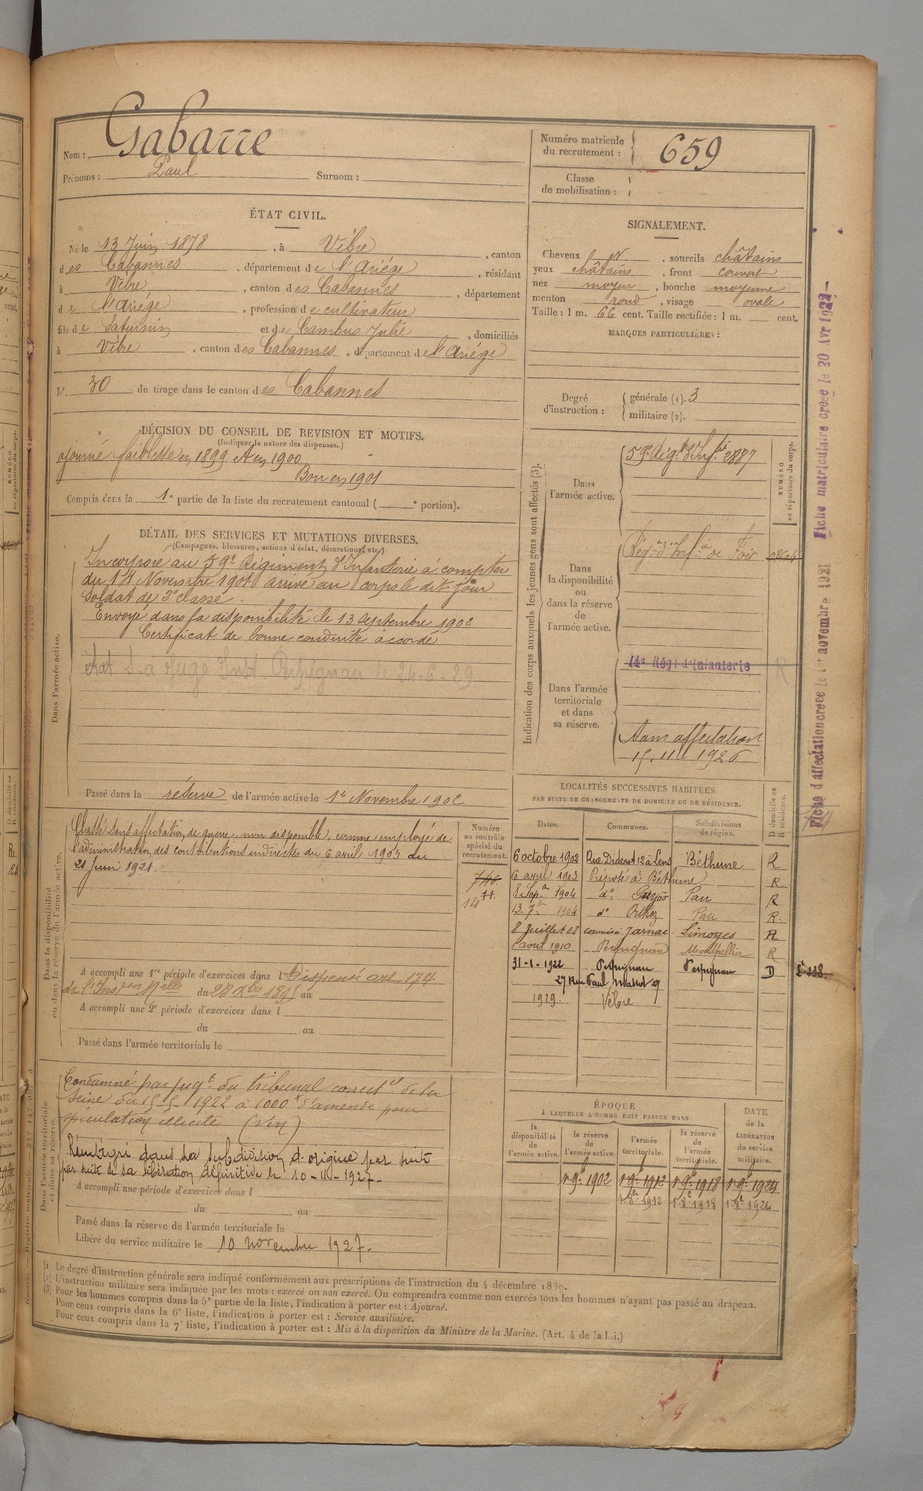 Nom : Gabarre
Prénoms : Paul Surnom :
Numéro matricule du recrutement : 659
Classe de mobilisation :
ÉTAT CIVIL.
Né le 13 Juin 1878, à Vèbre, canton
des Cabannes, département de l'Ariège, résidant
à Vèbre, canton des Cabannes, département
de l'Ariège, profession de cultivateur
fils de Saturnin et de Cambus Julie, domiciliés
à Vèbre, canton des Cabannes, département de l'Ariège
N°. 30 de tirage dans le canton des Cabannes
SIGNALEMENT.
Cheveux , sourcils châtains
yeux châtains, front couvert
nez moyen, bouche moyenne
menton rond, visage ovale
Taille : 1 m. 66 cent. Taille rectifiée : 1 m. cent.
MARQUES PARTICULIÈRES :
Degré d'instruction : générale (1). 3
militaire (2).
DÉCISION DU CONSEIL DE REVISION ET MOTIFS.
(Indiquer la nature des dispenses.)
ajourné faiblesse en 1899 et en 1900
Bon en 1901
Compris dans la 1e partie de la liste du recrutement cantonal ( e portion).
DÉTAIL DES SERVICES ET MUTATIONS DIVERSES.
(Campagnes, blessures, actions d'éclat, décorations, etc.)
Dans l'armée active.
Incorporé au 59e Régiment d'Infanterie à compter
du 14 Novembre 1901 arrivé au corps le dit jour
soldat de 2e classe.
Envoyé dans la disponibilité le 13 septembre 1902
Certificat de bonne conduite accordé
Perpignan le 24-6-29
Passé dans la réserve de l'armée active le 1er Novembre 1902
Indication des corps auxquels les jeunes gens sont affectés (3).
NUMÉRO au répertoire du corps.
Dans l'armée active.
59e Rég. d'Inf.ie 2887
Dans la disponibilité ou dans la réserve de l'armée active.
Rég. d'Inf.ie de Foix
Dans l'armée territoriale et dans sa réserve.
14e Régt d'Infanterie
Sans affectation
15.11.1926
Fiche matriculaire créée le 20 Avr 1922
Fiche d'affectation créée le 1er novembre 1921
Dans la disponibilité ou dans la réserve de l'armée active.
Classé sans affectation de guerre, non disponible, comme employé de
l'administration des contributions indirectes du 6 avril 1903 au
21 Juin 1921.
Numéro au contrôle spécial du recrutement.
A accompli une 1re période d'exercices dans l Dispensé art. 174
du 28 Xbre 1895 au
A accompli une 2e période d'exercices dans l
du au
Passé dans l'armée territoriale le
LOCALITÉS SUCCESSIVES HABITÉES
PAR SUITE DE CHANGEMENTS DE DOMICILE OU DE RÉSIDENCE.
Dates. Communes. Subdivisions de région. D domicile ou R résidence.
6 octobre 1902 Rue Diderot 12 à Lens Béthune R
6 avril 1903 Préposé à Béthune R
8 Sepbre 1904 do Pau R
13. 7bre 1904 do Orthez Pau R
8 Juillet 08 commis Jarnac Limoges R
avril 1910 Perpignan Montpellier R
31-1-1922 Perpignan Perpignan D
27 Rue Paul Massot 27
1929 Vèbre
Dans l'armée territoriale et dans sa réserve.
Condamné par jugt du tribunal correctel de la
Seine du 15-5-1922 à 1000 f d'amende pour
spéculation illicite (vin)
Réintégré dans sa subdivision d'origine par suite
par suite de sa libération définitive le 10-11-1927.
A accompli une période d'exercices dans l
du au
Passé dans la réserve de l'armée territoriale le
Libéré du service militaire le 10 novembre 1927.
ÉPOQUE
À LAQUELLE L'HOMME DOIT PASSER DANS
la disponibilité de l'armée active. la réserve de l'armée active. l'armée territoriale. la réserve de l'armée territoriale. DATE de la LIBÉRATION du service militaire.
1er 9bre 1902 1er 9bre 1912 1er 9bre 1918 1er 9bre 1924
1er Xbre 1912 1er Xbre 1918 1er Xbre 1924
(1) Le degré d'instruction générale sera indiqué conformément aux prescriptions de l'instruction du 4 décembre 1889.
(2) L'instruction militaire sera indiquée par les mots : exercé ou non exercé. On comprendra comme non exercés tous les hommes n'ayant pas passé au drapeau.
(3) Pour les hommes compris dans la 5e partie de la liste, l'indication à porter est : Ajourné.
Pour ceux compris dans la 6e liste, l'indication à porter est : Service auxiliaire.
Pour ceux compris dans la 7e liste, l'indication à porter est : Mis à la disposition du Ministre de la Marine. (Art. 4 de la loi.)